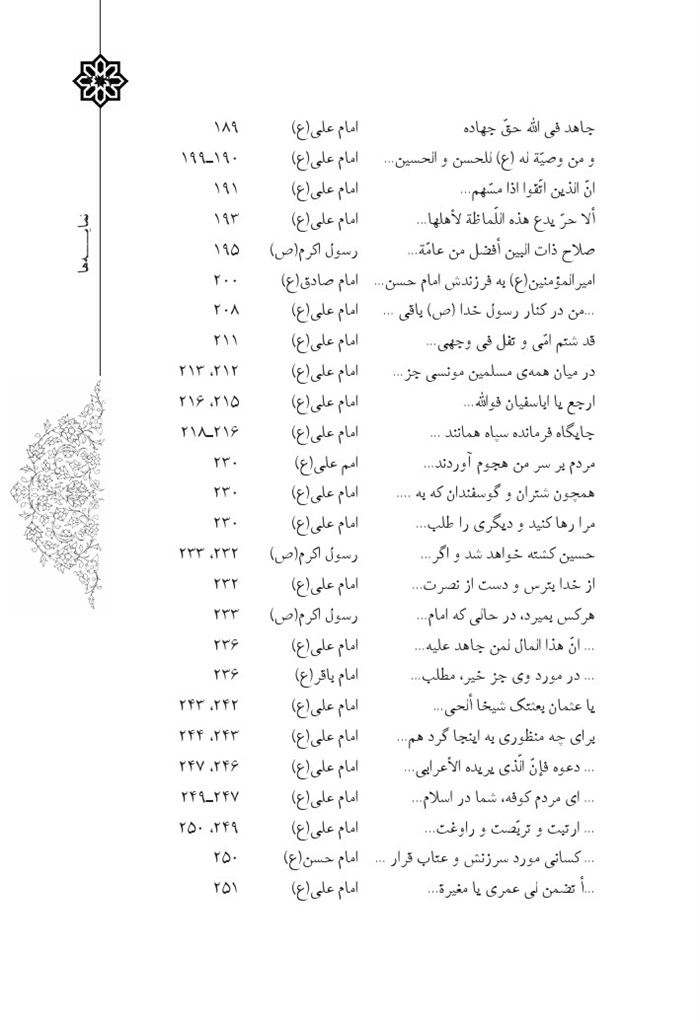 جاهد فی الله حقّ جهاده امام علی(ع) ۱۸۹
و من وصیّة له (ع) للحسن و الحسین... امام علی(ع) ۱۹۰ـ۱۹۹
انّ الذین اتّقوا اذا مسّهم... امام علی(ع) ۱۹۱
ألا حرّ یدع هذه اللّماظة لأهلها... امام علی(ع) ۱۹۳
صلاح ذات البین أفضل من عامّة... رسول اکرم(ص) ۱۹۵
امیرالمؤمنین(ع) به فرزندش امام حسن... امام صادق(ع) ۲۰۰
...من در کنار رسول خدا (ص) باقی ... امام علی(ع) ۲۰۸
قد شتم امّی و تفل فی وجهی... امام علی(ع) ۲۱۱
در میان همه‌ی مسلمین مونسی جز... امام علی(ع) ۲۱۲، ۲۱۳
ارجع یا اباسفیان فوالله... امام علی(ع) ۲۱۵، ۲۱۶
جایگاه فرمانده سپاه همانند ... امام علی(ع) ۲۱۶ـ۲۱۸
مردم بر سر من هجوم آوردند... امم علی(ع) ۲۳۰
همچون شتران و گوسفندان که به .... امام علی(ع) ۲۳۰
مرا رها کنید و دیگری را طلب... امام علی(ع) ۲۳۰
حسین کشته خواهد شد و اگر... رسول اکرم(ص) ۲۳۲، ۲۳۳
از خدا بترس و دست از نصرت... امام علی(ع) ۲۳۲
هرکس بمیرد، در حالی که امام... رسول اکرم(ص) ۲۳۳
... انّ هذا المال لمن جاهد علیه... امام علی(ع) ۲۳۶
... در مورد وی جز خیر، مطلب... امام باقر(ع) ۲۳۶
یا عثمان بعثتک شیخا ألحی... امام علی(ع) ۲۴۲، ۲۴۳
برای چه منظوری به اینجا گرد هم... امام علی(ع) ۲۴۳، ۲۴۴
... دعوه فإنّ الّذی یریده الأعرابی... امام علی(ع) ۲۴۶، ۲۴۷
... ای مردم کوفه، شما در اسلام... امام علی(ع) ۲۴۷ـ۲۴۹
... ارتبت و تربّصت و راوغت... امام علی(ع) ۲۴۹، ۲۵۰
... کسانی مورد سرزنش و عتاب قرار ... امام حسن(ع) ۲۵۰
...أ تضمن لی عمری یا مغیرة... امام علی(ع) ۲۵۱
نمایه‌ها